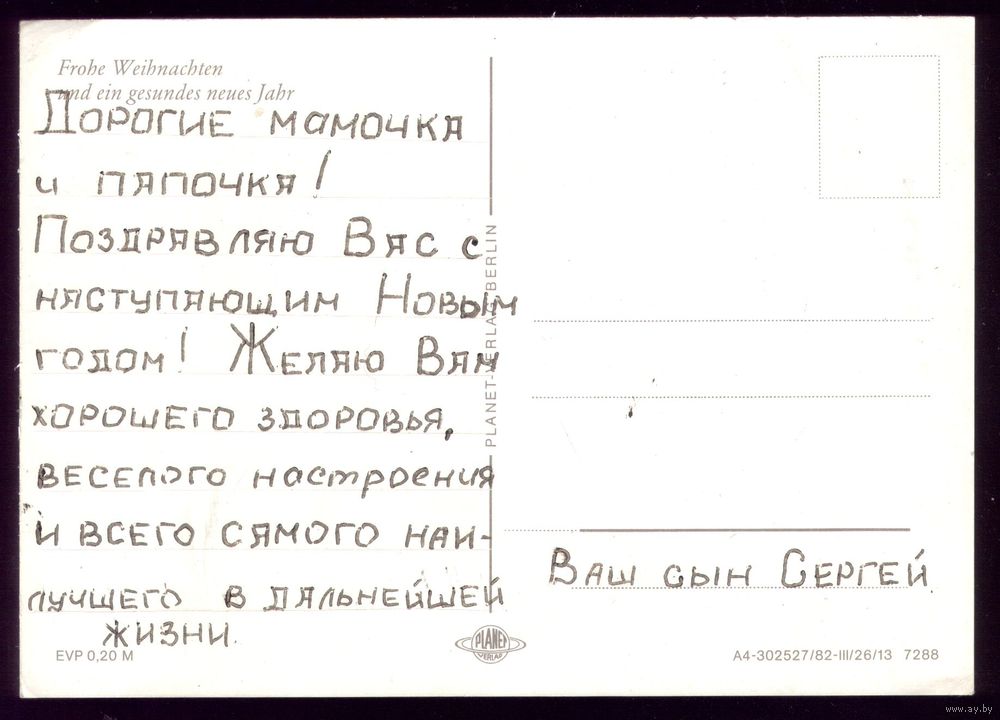 Frohe Weihnachten
und ein gesundes neues Jahr
Дорогие мамочка
и папочка!
Поздравляю Вас с
наступающим Новым
годом! Желаю Вам
хорошего здоровья,
веселого настроения
и всего самого наи-
лучшего в дальнейшей
жизни.
EVP 0,20 M
PLANET-VERLAG BERLIN
PLANET
VERLAG
Ваш сын Сергей
A4-302527/82-III/26/13 7288
www.ay.by